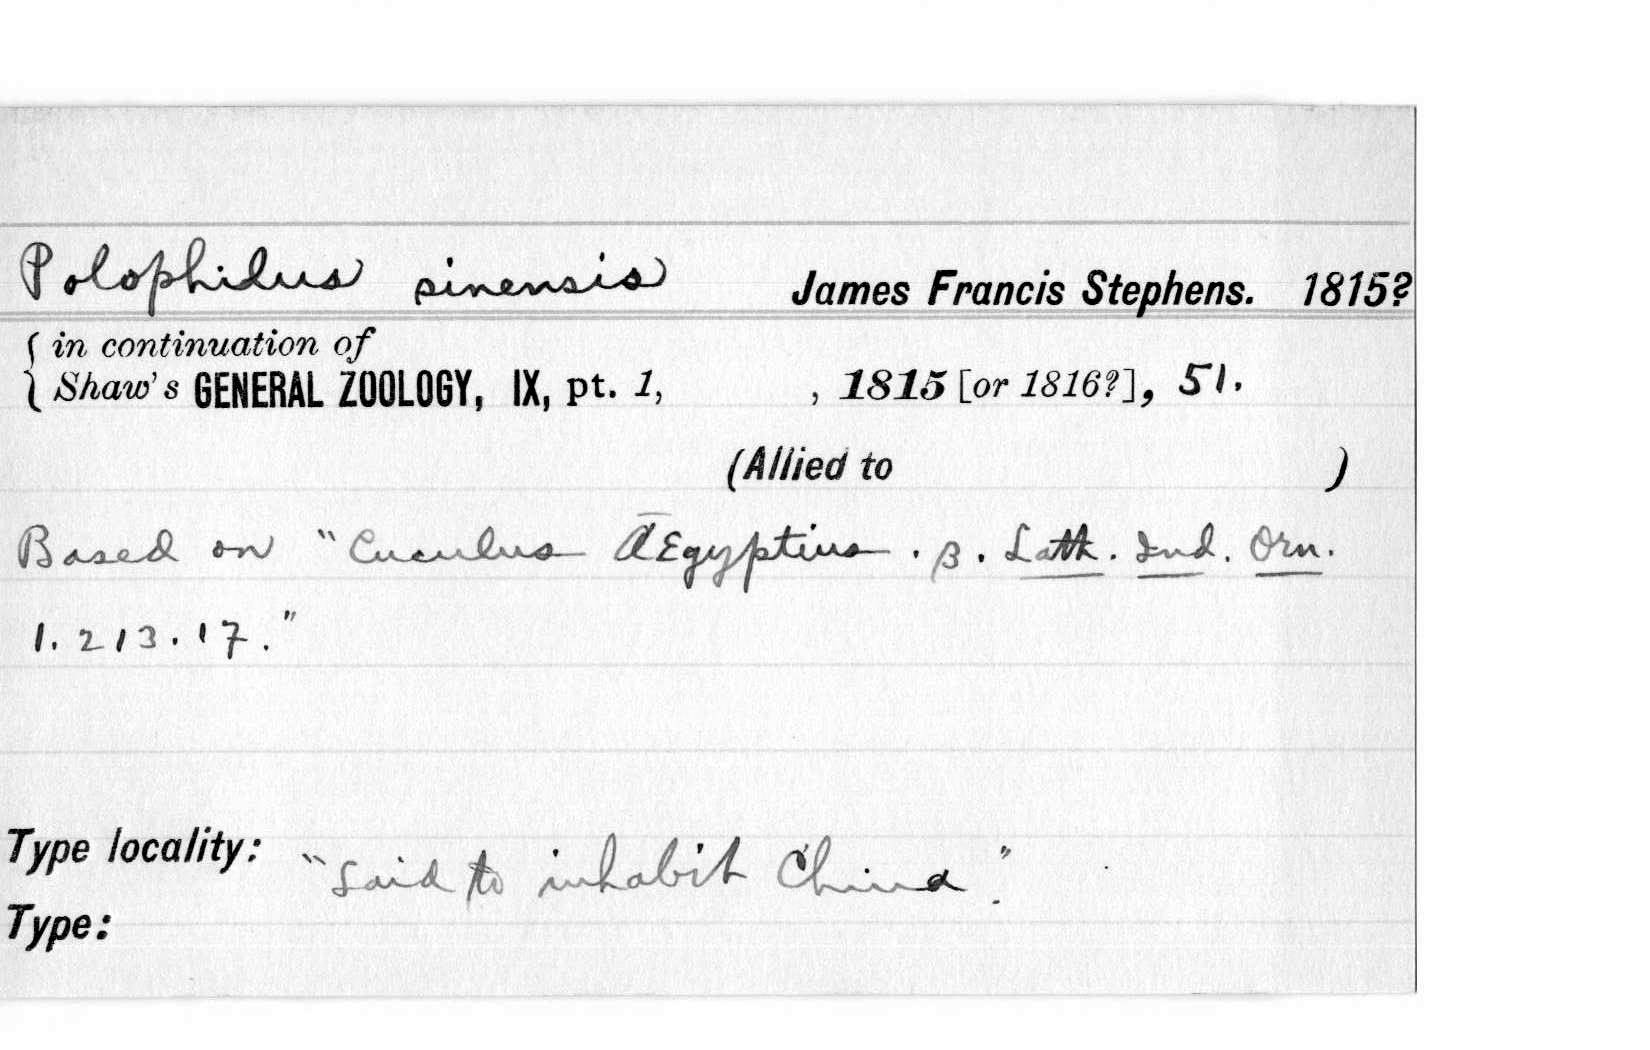 Polophilus sinensis James Francis Stephens. 1815?
{ in continuation of
Shaw's GENERAL ZOOLOGY, IX, pt. 1, , 1815 [or 1816?], 51.
(Allied to )
Based on "Cuculus Ægyptius . β . Lath. Ind. Orn.
1. 213. 17."
Type locality: "Said to inhabit China".
Type: